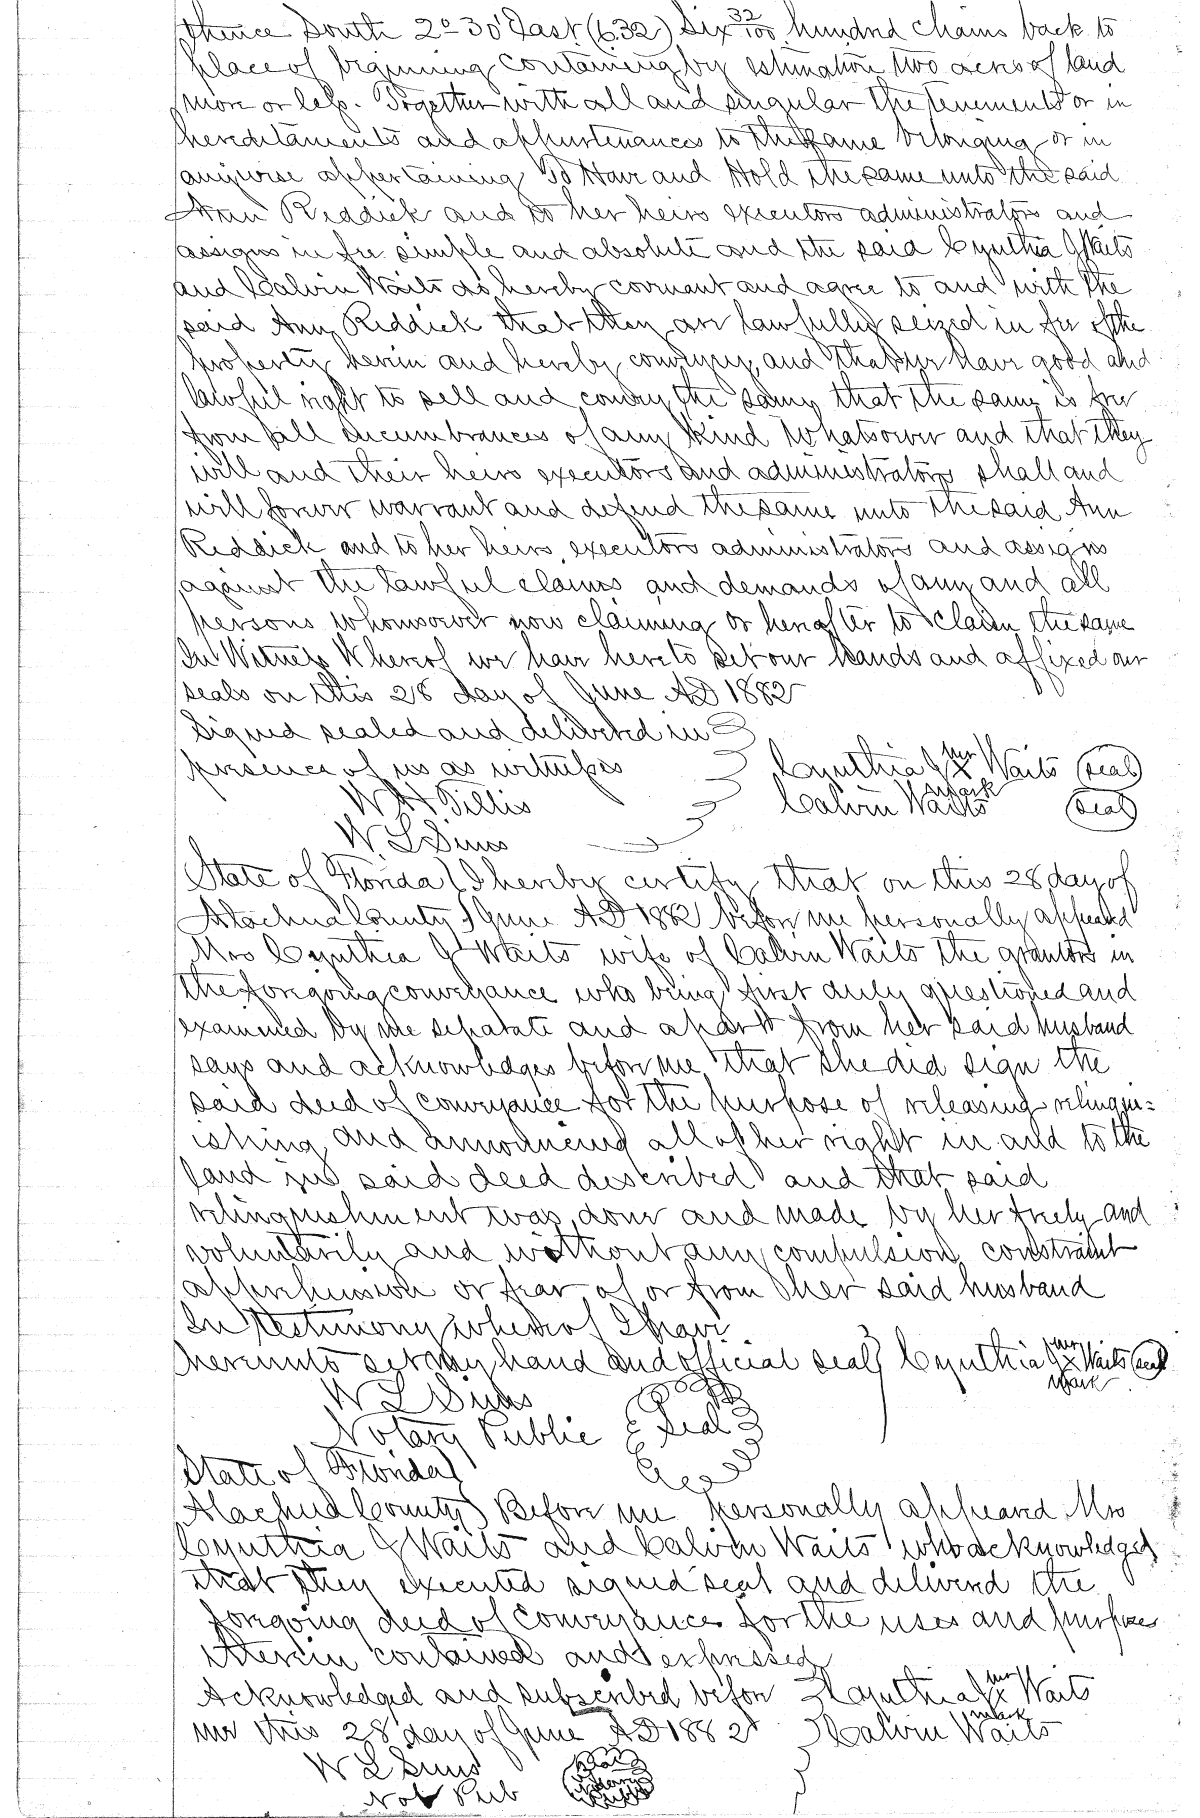 thence South 2° 30' East (6.32) Six 32/100 hundred chains back to
place of beginning containing by estimation two acres of land
more or less. Together with all and singular the tenements or in
hereditaments and appurtenances to the same belonging or in
anywise appertaining To Have and Hold the same unto the said
Ann Reddick and to her heirs executors administrators and
assigns in fee simple and absolute and the said Cynthia J Waits
and Calvin Waits do hereby covenant and agree to and with the
said Ann Reddick that they are lawfully seized in fee of the
property herein and hereby conveyed, and that we have good and
lawful right to sell and convey the same, that the same is free
from all incumbrances of any kind whatsoever and that they
will and their heirs executors and administrators shall and
will forever warrant and defend the same unto the said Ann
Reddick and to her heirs executors administrators and assigns
against the lawful claims and demands of any and all
persons whomsoever now claiming or hereafter to claim the same
In Witness Whereof we have hereto set our hands and affixed our
seals on this 28 day of June AD 1882
Signed sealed and delivered in
presence of us as witness
Cynthia J her x mark Waits (seal)
W H Tillis
Calvin Waits (seal)
W. L Sims
State of Florida } I hereby certify that on this 28 day of
Alachua County } June AD 1882 before me personally appeared
Mrs Cynthia J Waits wife of Calvin Waits the grantors in
the foregoing conveyance who being first duly questioned and
examined by me separate and apart from her said husband
says and acknowledges before me that she did sign the
said deed of conveyance for the purpose of releasing relinqu=
ishing and announcing all of her right in and to the
land in said deed described and that said
relinquishment was done and made by her freely and
voluntarily and without any compulsion constraint
apprehension or fear of or from her said husband
In testimony whereof I have
hereunto set my hand and official seal } Cynthia J her x mark Waits (seal)
W L Sims
Notary Public Seal
State of Florida }
Alachua County } Before me personally appeared Mrs
Cynthia J Waits and Calvin Waits who acknowledged
that they executed signed seal and delivered the
foregoing deed of conveyance for the uses and purposes
therein contained and expressed
Acknowledged and subscribed before } Cynthia J her x mark Waits
me this 28 day of June AD 1882 } Calvin Waits
W L Sims
Not Pub